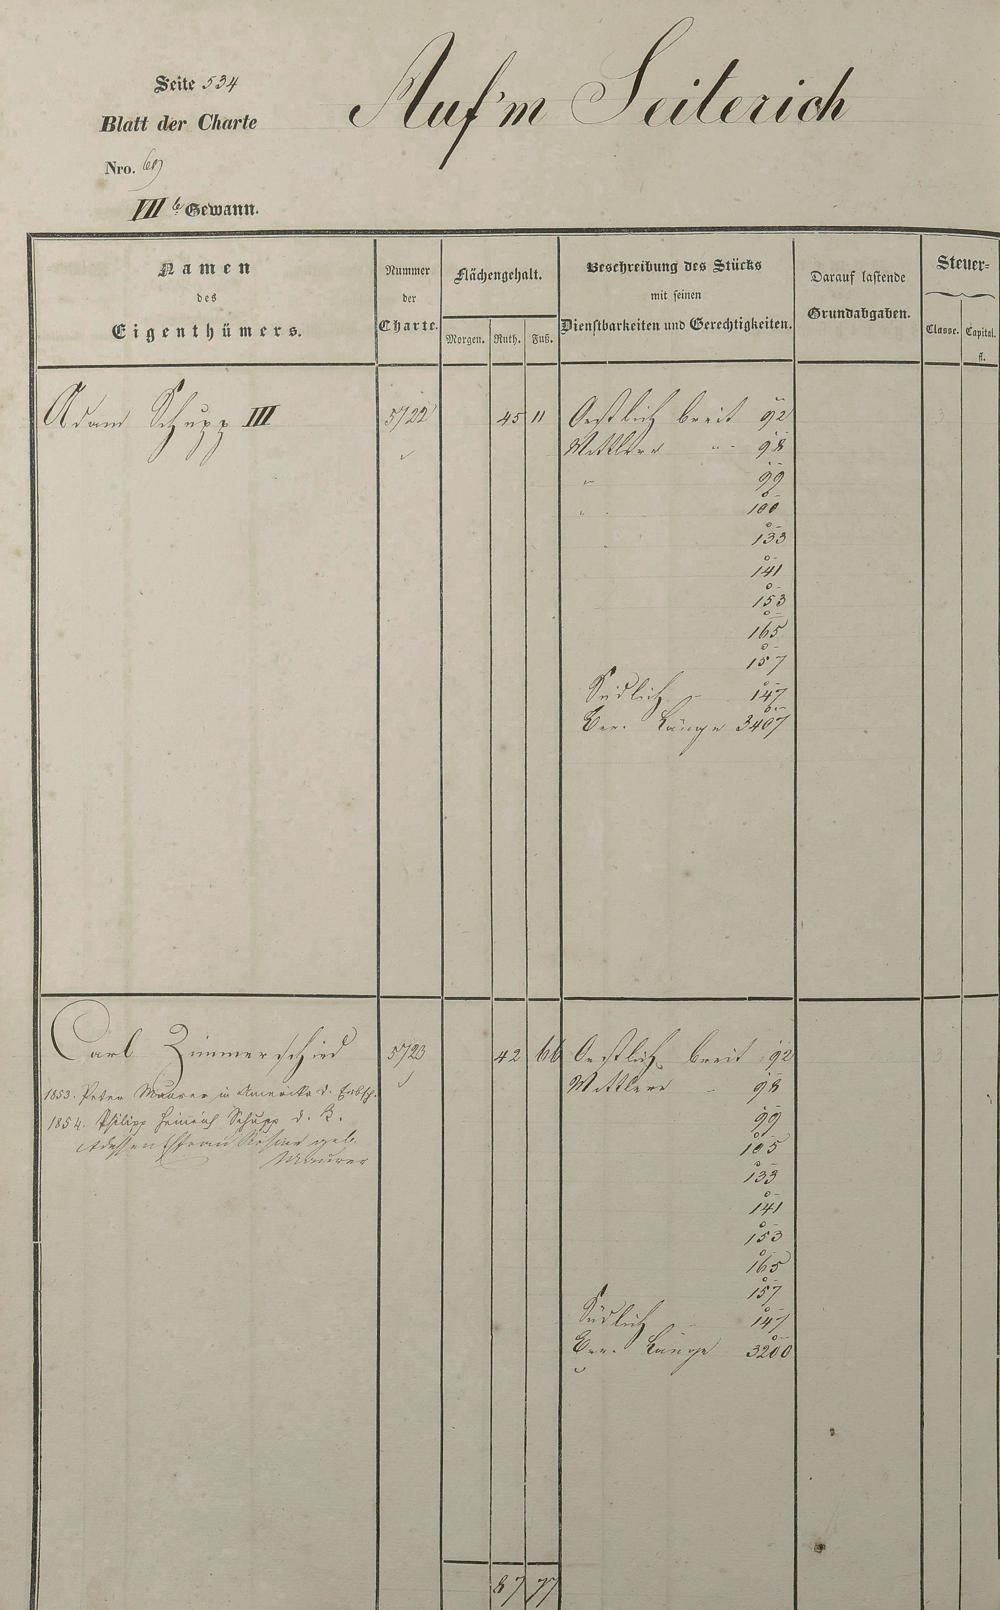 Seite 534
Auf'm Seiterich
Blatt der Charte
Nro. 69
VII te Gewann.
Namen des Eigenthümers.
Nummer der Charte.
Flächengehalt.
Morgen. Ruth. Fuß.
Beschreibung des Stücks
mit seinen
Dienstbarkeiten und Gerechtigkeiten.
Darauf lastende
Grundabgaben.
Steuer-
Classe. Capital.
fl.
Adam Schupp III 5722 45 11 Oestlich breit 92
Mittlere " 98
" 99
" 100
133
141
153
165
157
Südlich - 147
Länge 3407
Carl Zimmerschied 5723 42 66 Oestlich breit 92
Mittlere - 98
1853. Peter Maurer in Amerika d. Erbsch.
99
1854. Philipp Heinrich Schupp d. K.
105
dessen Ehefrau geb.
Maurer
133
141
153
165
157
Südlich - 147
Länge 3200
87 77